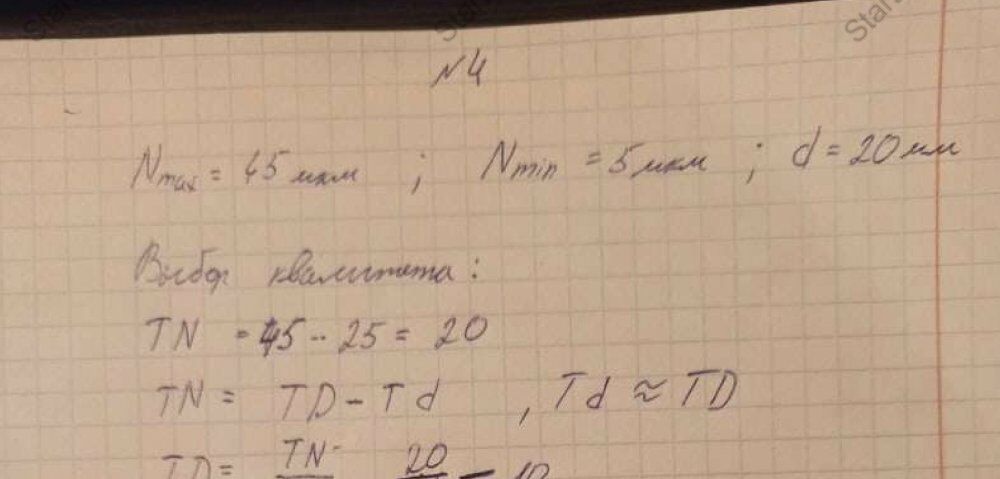 №4
Nmax = 45 мкм ; Nmin = 5 мкм ; d = 20 мм
Выбор квалитета:
TN = 45 - 25 = 20
TN = TD - Td , Td ≈ TD
TD = TN 20 = 10